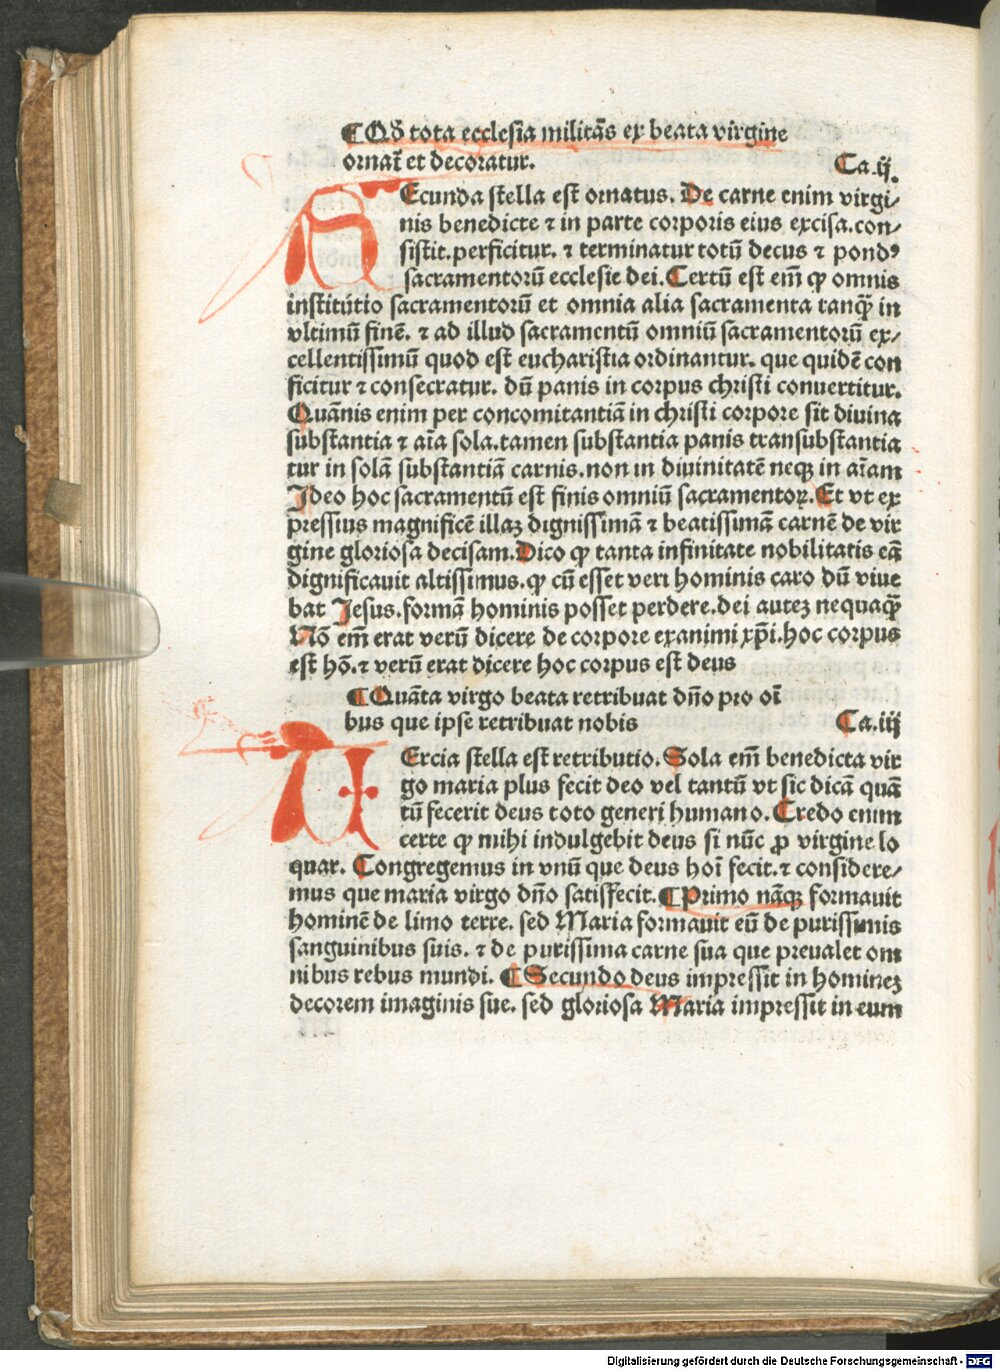 ¶ Qḋ tota ecclesia militãs ex beata virgine
ornat̃ et decoratur. Ca.ij.
Ecunda stella est ornatus. De carne enim virgi⸗
nis benedicte ⁊ in parte corporis eius excisa.con⸗
sistit.perficitur. ⁊ terminatur totũ decus ⁊ pondꝰ
sacramentorũ ecclesie dei. Certũ est em̃ ꝙ omnis
institutio sacramentorũ et omnia alia sacramenta tanꝗ̃ in
vltimũ finẽ. ⁊ ad illud sacramentũ omniũ sacramentorũ ex⸗
cellentissimũ quod est eucharistia ordinantur. que quidẽ con
ficitur ⁊ consecratur. dũ panis in corpus christi conuertitur.
Quãnis enim per concomitantiã in christi corpore sit diuina
substantia ⁊ aĩa sola.tamen substantia panis transubstantia
tur in solã substantiã carnis.non in diuinitatẽ neqꝫ in aĩam
Ideo hoc sacramentũ est finis omniũ sacramentoꝝ. Et vt ex
pressius magnificẽ illaꝫ dignissimã ⁊ beatissimã carnẽ de vir
gine gloriosa decisam. Dico ꝙ tanta infinitate nobilitatis eã
dignificauit altissimus. ꝙ cũ esset veri hominis caro dũ viue
bat Jesus. formã hominis posset perdere. dei auteꝫ nequaꝗ̃
Nõ em̃ erat verũ dicere de corpore exanimi xp̃i. hoc corpus
est hõ. ⁊ verũ erat dicere hoc corpus est deus
¶ Quãta virgo beata retribuat dño pro oĩ
bus que ipse retribuat nobis Ca.iij
U Ercia stella est retributio. Sola em̃ benedicta vir
go maria plus fecit deo vel tantũ vt sic dicã quã
tũ fecerit deus toto generi humano. Credo enim
certe ꝙ mihi indulgebit deus si nũc ꝓ virgine lo
quar. Congregemus in vnũ que deus hoĩ fecit. ⁊ considere⸗
mus que maria virgo dño satisfecit. ¶ Primo nãqꝫ formauit
hominẽ de limo terre. sed Maria formauit eũ de purissimis
sanguinibus suis. ⁊ de purissima carne sua que preualet om
nibus rebus mundi. ¶ Secundo deus impressit in homineꝫ
decorem imaginis sue. sed gloriosa Maria impressit in eum
Digitalisierung gefördert durch die Deutsche Forschungsgemeinschaft - DFG